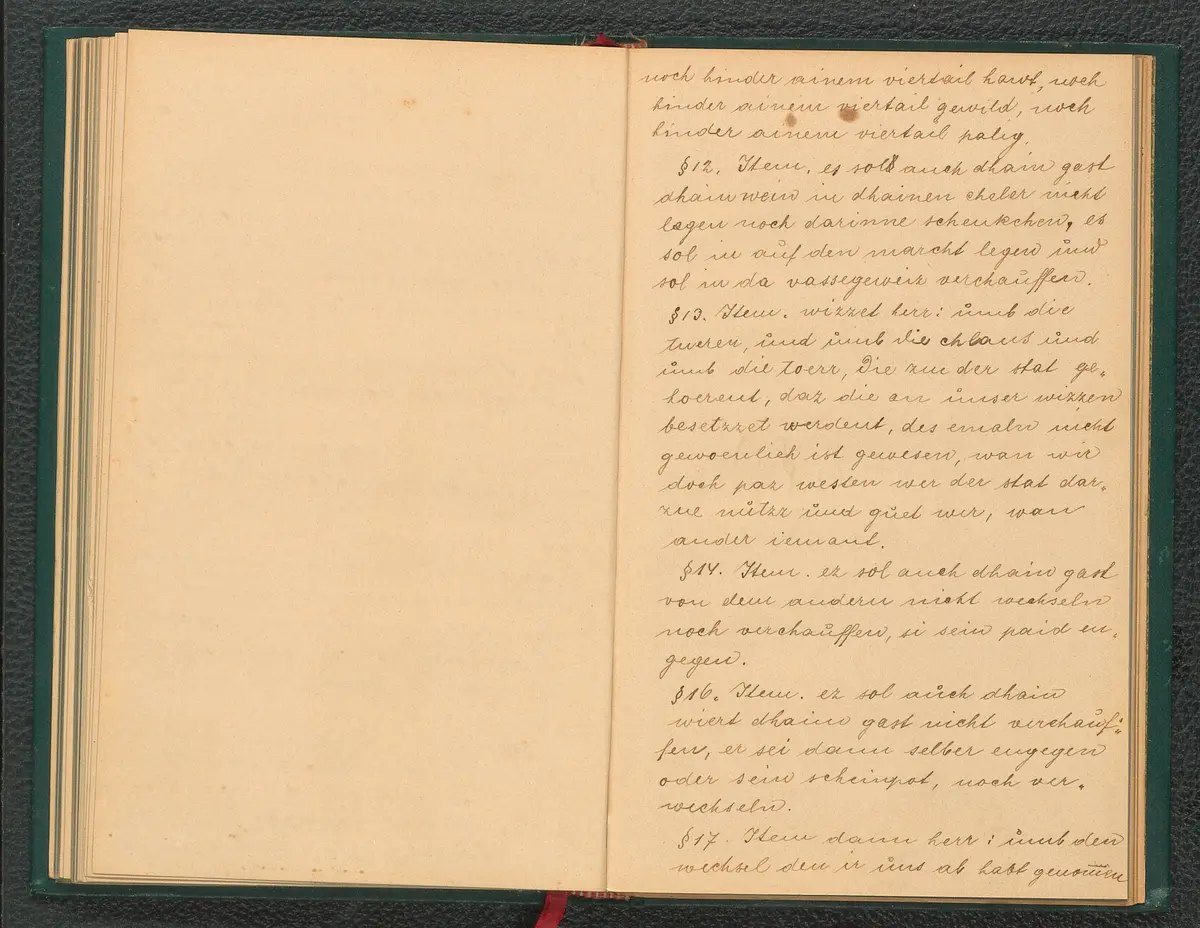 noch hinder ainem viertail hawt, noch
hinder ainem viertail gewild, noch
hinder ainem viertail palig.
§12. Item. es sol auch dhain gast
dhain wein in dhainen cheler nicht
legen noch darinne schenkchen, es
sol in auf den marcht legen und
sol in da vassegeweiz verchauffen.
§13. Item. wizzet herr: ůmb die
tweren, ůnd ůmb die chlaus ůnd
ůmb die toerr, die zu der stat ge„
hoerent, daz die an ůnser wizzen
besetzzet werdent, des emaln nicht
gewoenlich ist gewesen, wan wir
doch paz westen wer der stat dar„
zue nůtzr ůnd gůet wer, wan
ander iemant.
§14. Item. ez sol auch dhain gast
von dem andern nicht wechseln
noch verchauffen, si sein paid en„
gegen.
§16. Item. ez sol aůch dhain
wiert dhaim gast nicht verchauf„
fen, er sei dann selber engegen
oder sein scheinpot, noch ver„
wechseln.
§17. Item dann herr: ůmb den
wechsel den ir ůns ab habt genom̄en